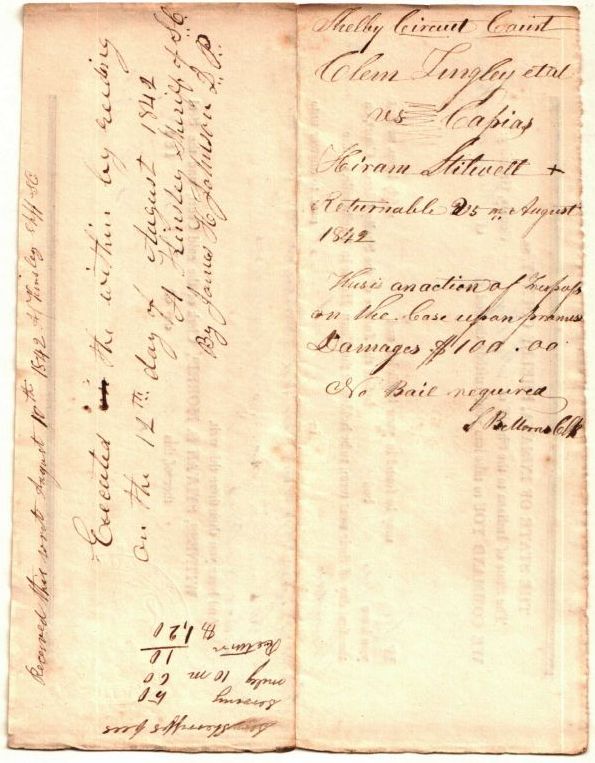 Shelby Circuit Court
Clem Tingley et al
vs Capias
Hiram Stilwell +
Returnable 25 August
1842
This is an action of Trespass
on the Case upon promises
Damages $100.00
No Bail required
S Clk
Received this writ August 10th 1842 Shff SC
Executed the within by reading
on the 12th day of August 1842
Sheriff of S. C.
By James H Johnson D. P.
Sheriffs fees
Serving 50
10 m 60
Return 10
$1,20